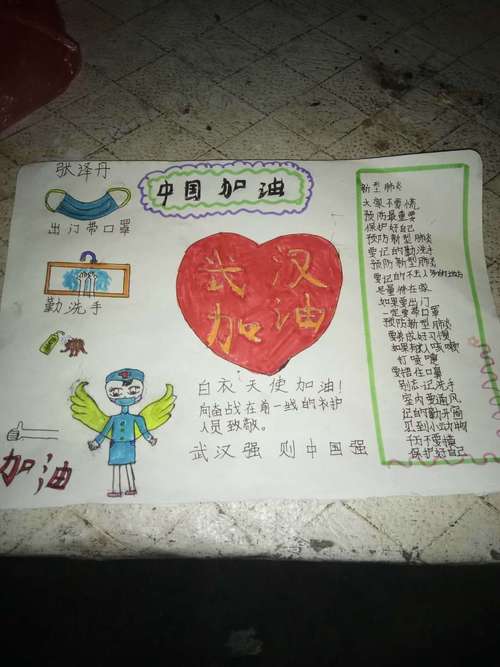 张泽丹
中国加油
出门带口罩
勤洗手
武汉
加油
白衣天使加油!
向奋战在着一线的
人员致敬。
武汉强 则中国强
加油
新型肺炎
大家不要慌
预防最重要
保护好自己
预防新型肺炎
要记的勤洗手
预防新型肺炎
要记的不去人多的
尽量待在家
如果要出门
一定要带口罩
预防新型肺炎
要养成好习惯
如果有人咳嗽
打喷嚏
要捂住口鼻
别忘记洗手
室内要通风
记的勤开窗
见到小动物
千万不要慌
保护好自己